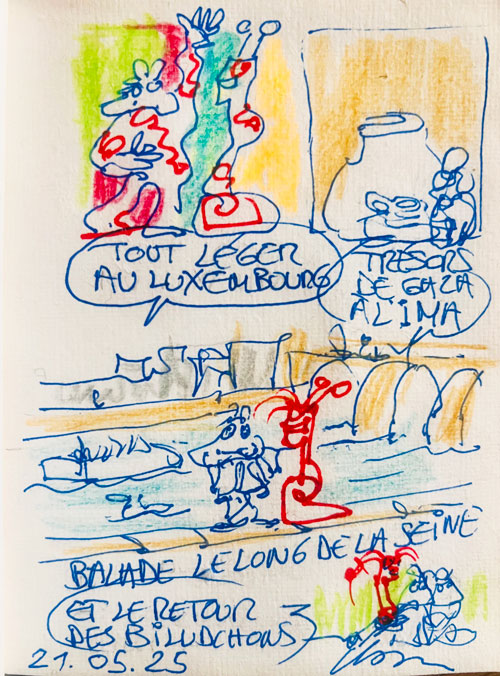 TOUT LÉGER
AU LUXEMBOURG
TRÉSORS
DE GAZA
À L'IMA
BALADE LE LONG DE LA SEINE
ET LE RETOUR
DES BILUDCHONS
21.05.25